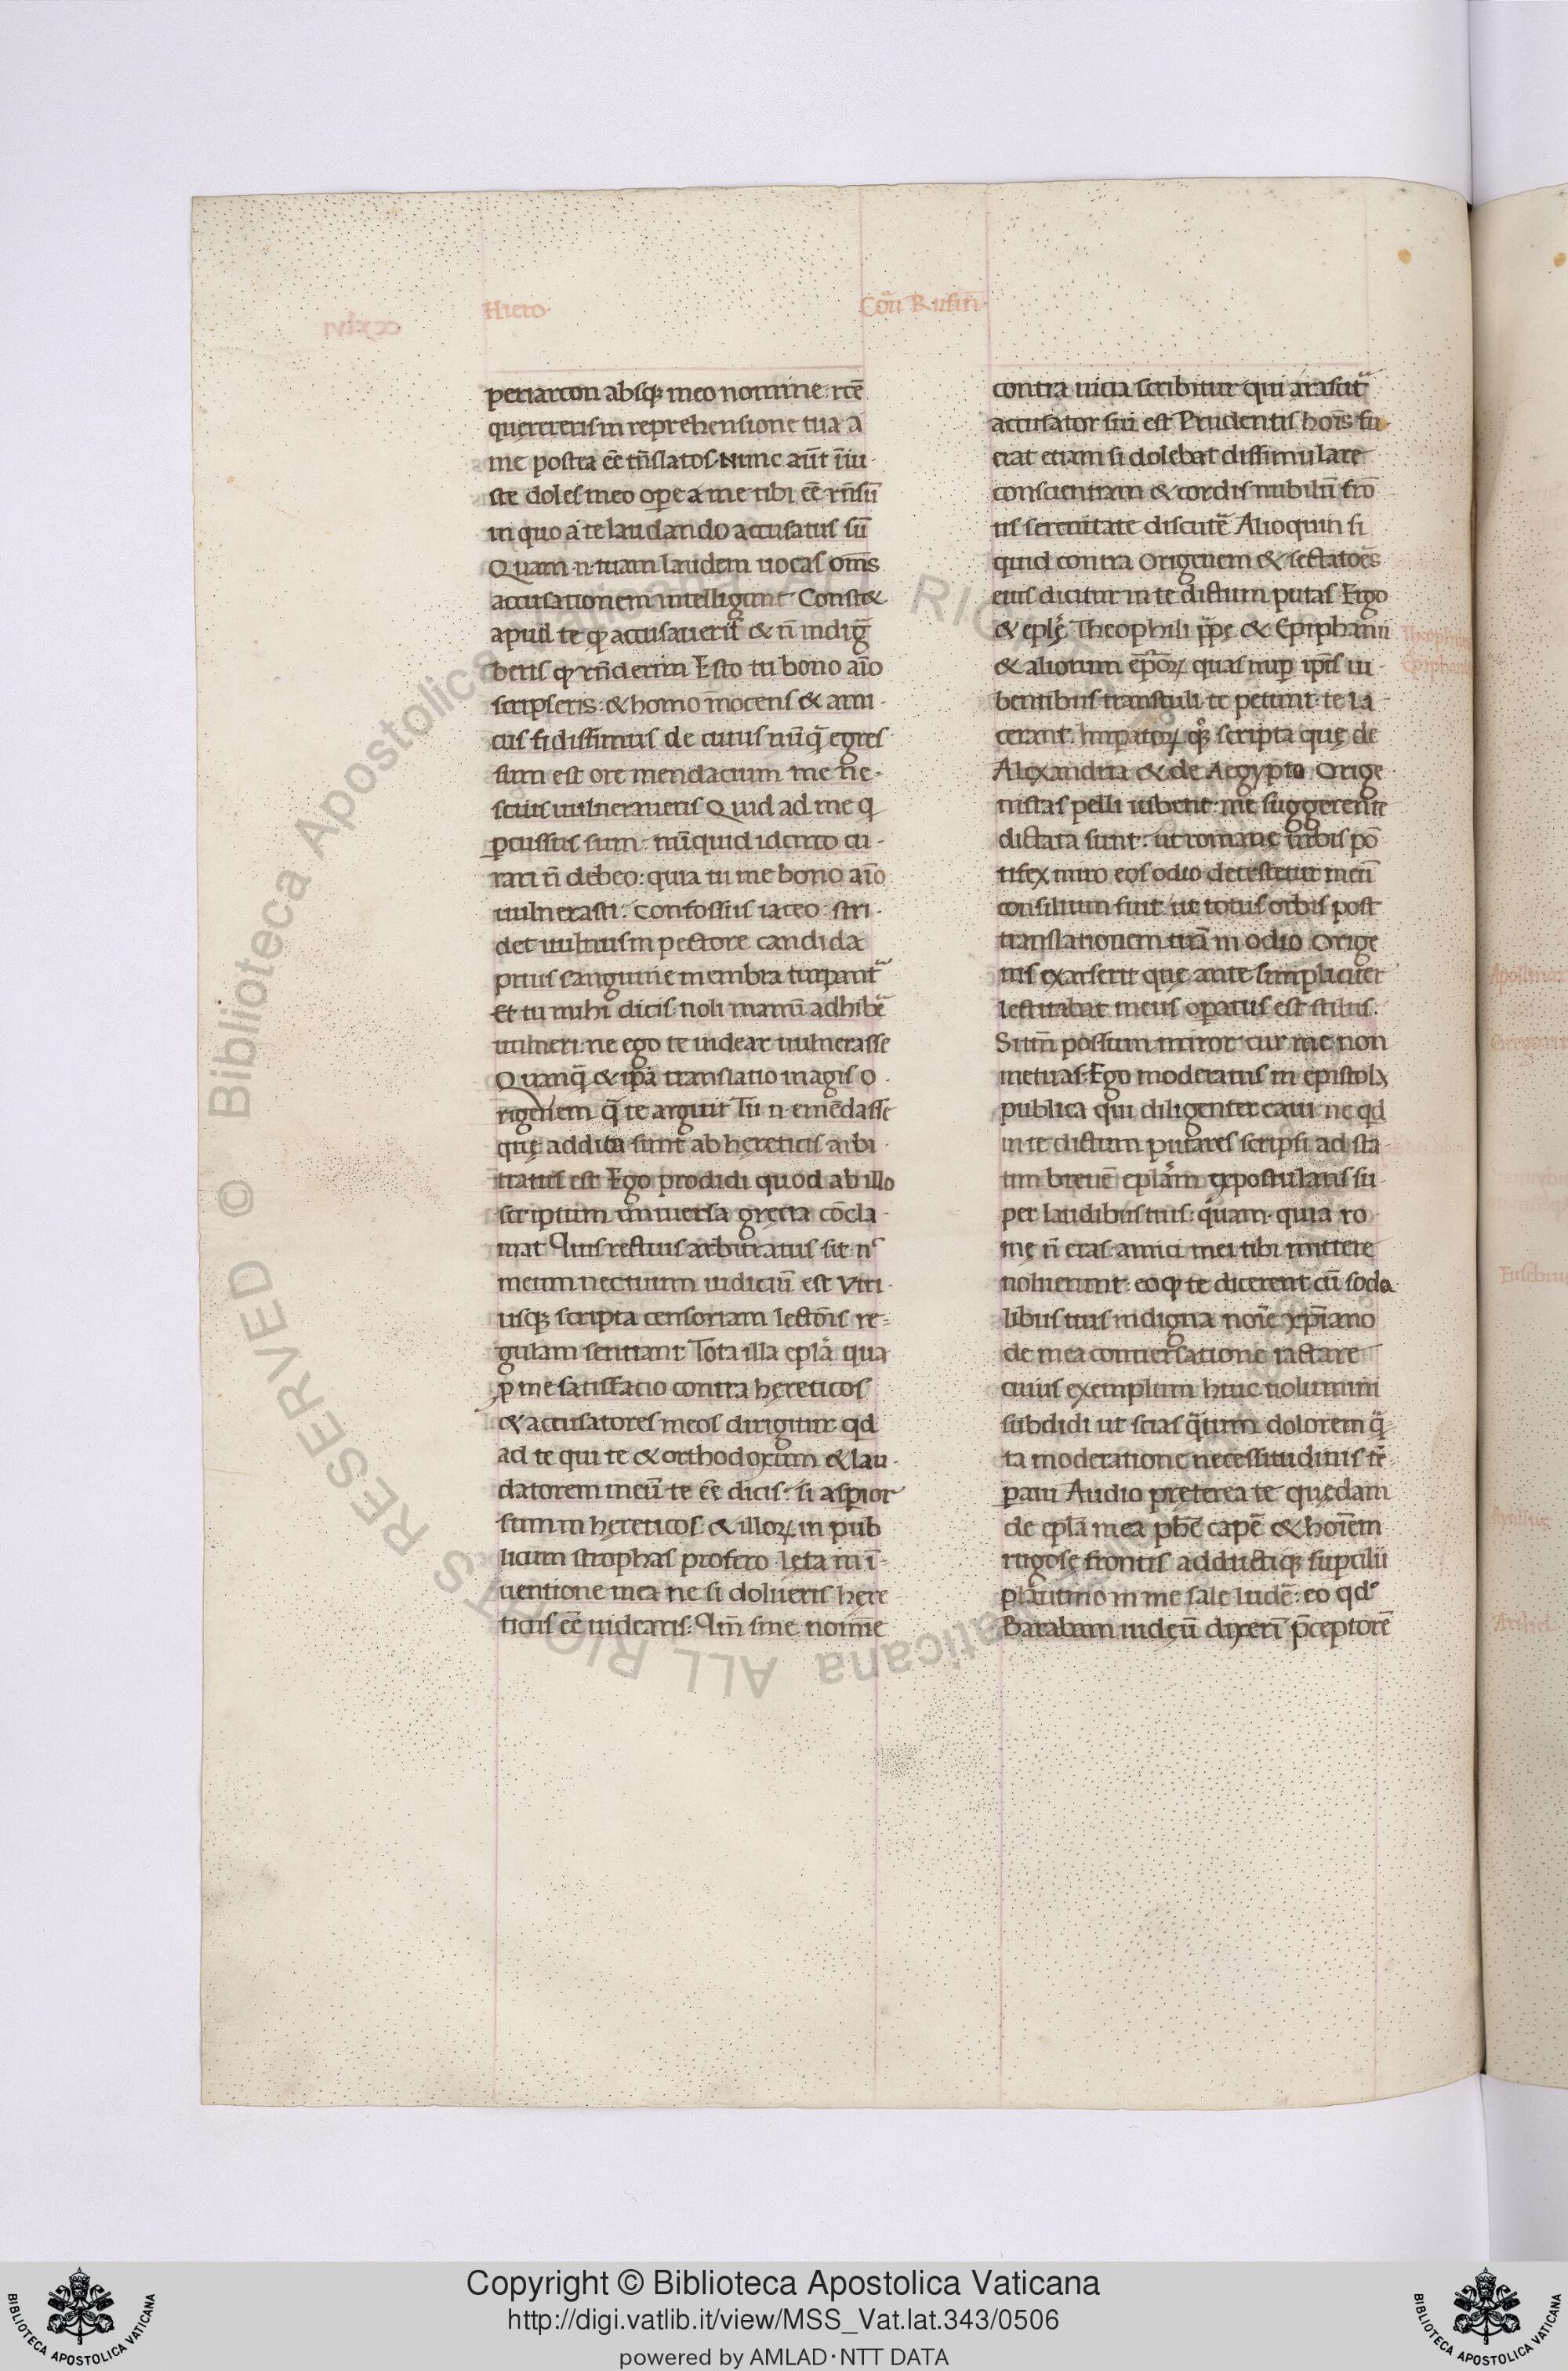 Hiero·
Cōn Rufin̄·
periarcon absq; meo nomine: rcē
querereris in reprehensione tua a
me postea eē tn̄slatos. Nunc aūt īiu·
ste doles meo oꝑe a me tibi eē rn̄sū
in quo a te laudando accusatus sū
Quam .n. tuam laudem uocas om̄s
accusationem intelligunt Constet
apud te qꝫ accusaueris & n̄ indig̅
beris qꝫ rn̄derim Esto tu bono aīo
scripseris: & homo īnocens & ami·
cus fidissimus de cuius nūq̄ egres
sum est ore mendacium me ne·
scius uulneraueris Quid ad me q
ꝑcussus sum· nūquid idcirco cu·
rari n̄ debeo: quia tu me bono aīo
uulnerasti. Confossus iaceo: stri·
det uulnus in pectore candida
prius sanguine membra turpant̄
Et tu mihi dicis· noli manū adhibē
uulneri: ne ego te uidear uulnerasse
Quanq̄ & ip̄a translatio magis o·
rigenem q̄ te arguit Tu .n. emēdasse
quę addita sunt ab hęreticis arbi·
tratus est Ego prodidi quod ab illo
scriptum uniuersa gręcia cōcla·
mat Quis rectius arbitratus sit· n̄
meum nec tuum iudiciū est Vtri·
usq; scripta censoriam lectōris re=
gulam sentiant Tota illa epl̄a qua
ꝓ me satisfacio contra hęreticos
& accusatores meos dirigitur qd
ad te qui te & orthodoxum & lau·
datorem meū te eē dicis· si asꝑior
sum in hęreticos: & illoꝝ in pub
licum strophas profero· lęta m ī·
uentione mea ne si dolueris hęre
ticus eē uidearis: Qm̄ sine nomīe
contra uicia scribitur qui irascit̄
accusator sui est Prudentis hoīs fu·
erat etiam si dolebat dissimulare
conscientiam & cordis nubilū frō
tis serenitate discutē Alioquin si
quid contra Origenem & sectatoēs
eius dicitur in te dictum putas Ergo
& eplę̄ Theophili pp̄ę & Epiphanii
& aliorum ep̄oꝝ quas nuꝑ ip̄is iu·
bentibus transtuli te petunt· te la·
cerant. Imꝑatoꝝ qꝫ scripta quę de
Alexandria & de Aegypto Orige·
nistas pelli iubent· me suggerente
dictata sunt: ut romanę urbis pō
tifex miro eos odio detestetur meū
consilium fuit ut totus orbis post
translationem tuā in odio Orige
nis exarserit quę ante simpliciter
lectitabat meus oꝑatus est stilus.
Si tm̄ possum miror· cur me non
metuas. Ego moderatus in epistola
publica qui diligenter caui· ne qd
in te dictum putares scripsi ad sta·
tim breuē epl̄am expostulans su·
per laudibus tuis: quam· quia ro·
mę n̄ eras· amici mei tibi mittere
noluerunt· eo qꝫ te dicerent cū soda·
libus tuis indigna noīe xp̄iano
de mea conuersatione iactare
cuius exemplum huic uolumini
subdidi ut scias q̄tum dolorem q̄·
ta moderatione necessitudinis tē
ꝑaui Audio pręterea te quędam
de epl̄a mea ph̄ē capē & hoīem
rugosę frontis adductiq; suꝑcilii
plautino in me sale ludē: eo qd
Baraban iudęū dixeri p̄ceptorē
Copyright © Biblioteca Apostolica Vaticana
http://digi.vatlib.it/view/MSS_Vat.lat.343/0506
powered by AMLAD·NTT DATA